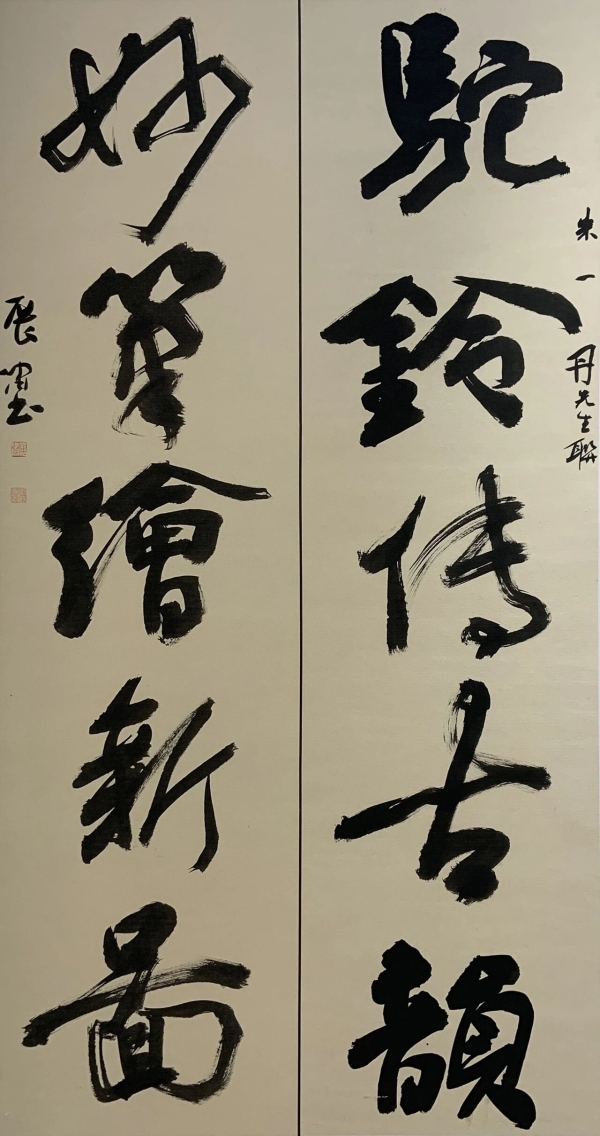 駝鈴傳古韻
朱一丹先生聯
妙筆繪新圖
展墨